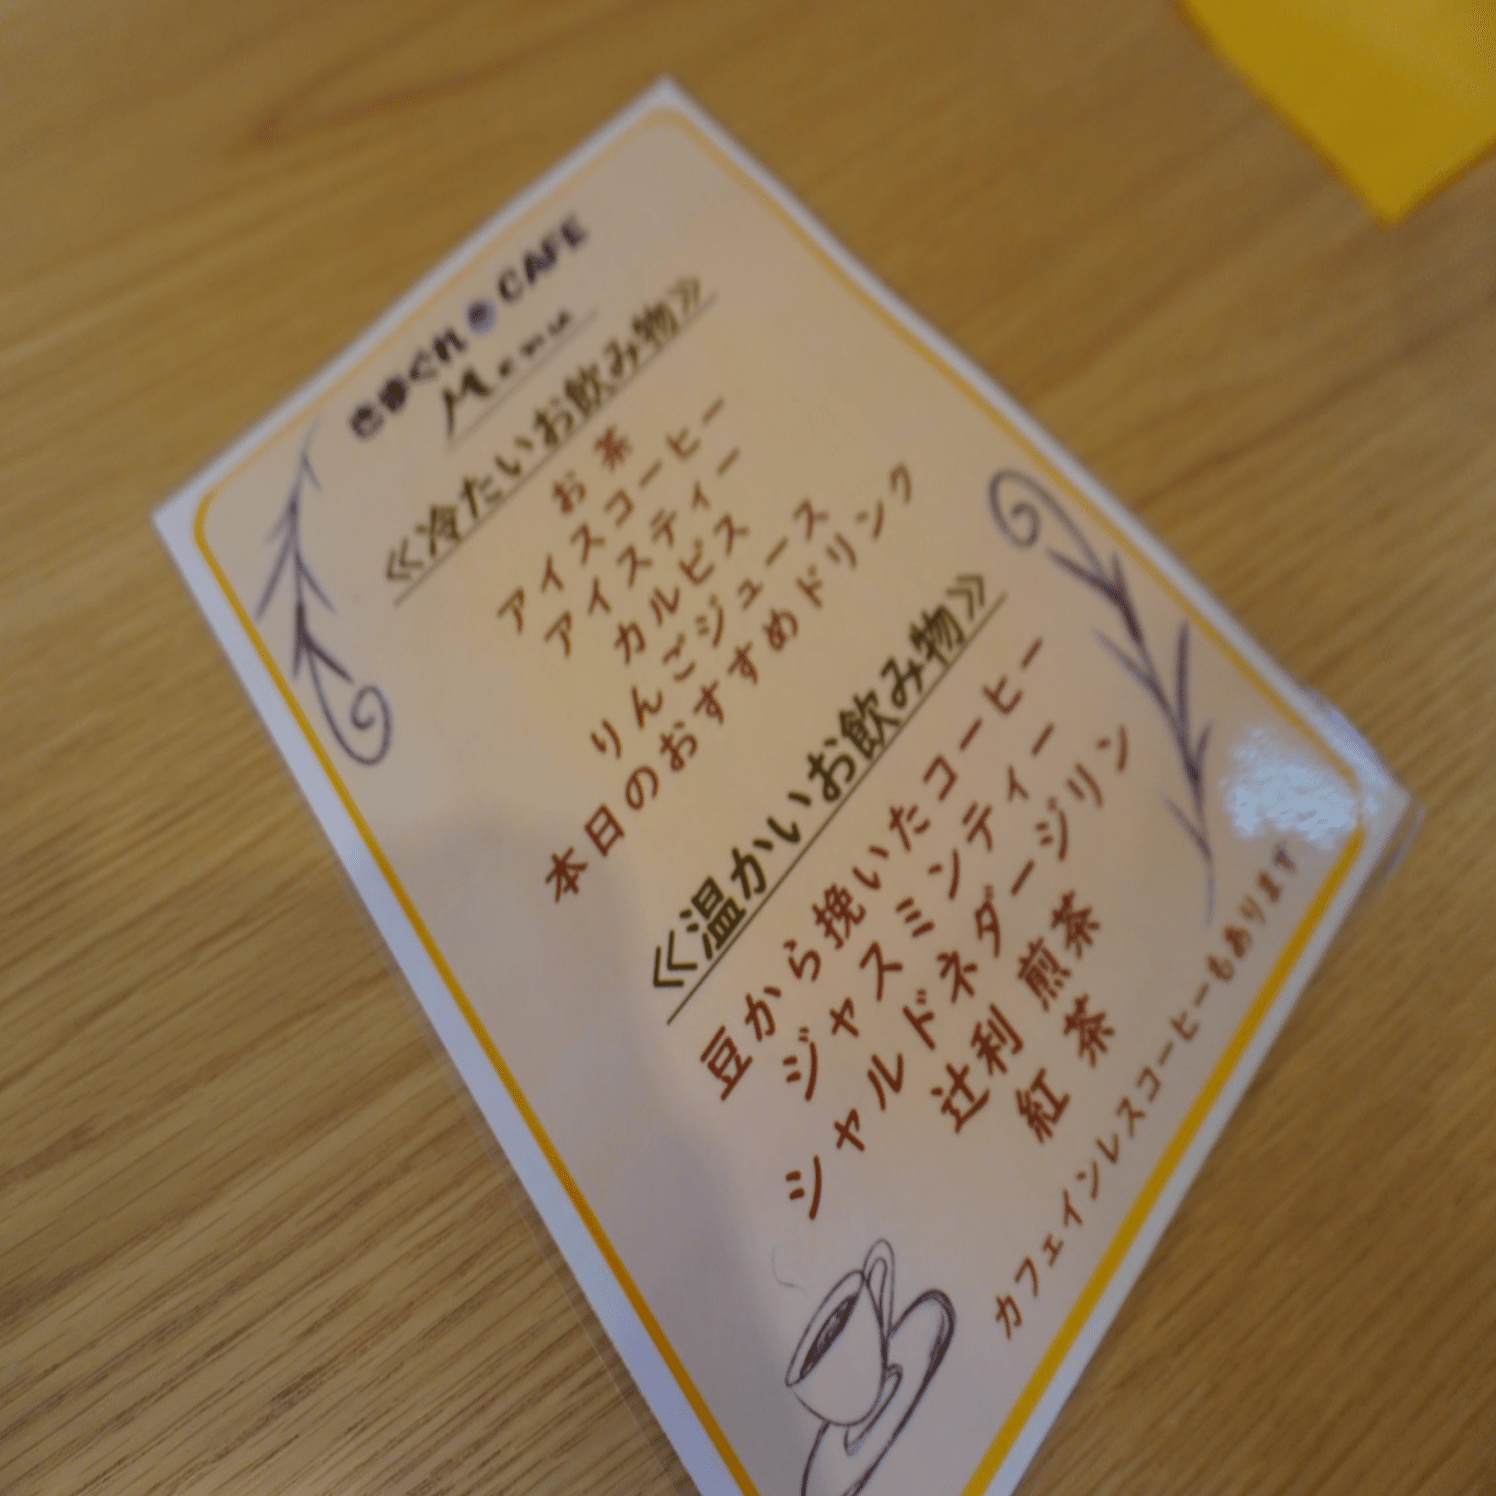 きまぐれ CAFE
Menu
≪冷たいお飲み物≫
お茶
アイスコーヒー
アイスティー
カルピス
りんごジュース
本日のおすすめドリンク
≪温かいお飲み物≫
豆から挽いたコーヒー
ジャスミンティー
シャルドネダージリン
辻利 煎茶
紅茶
カフェインレスコーヒーもあります